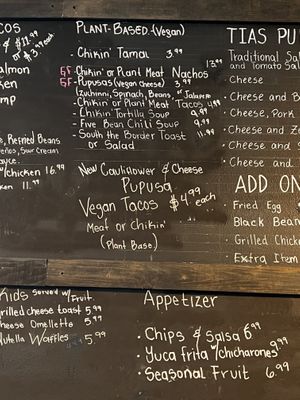 COS
& $11.99
or $3.99 each
almon
ken
mp
Refried Beans
Sour Cream
auce.
w/chicken 16.99
ken 11.99
PLANT-BASED (Vegan)
- Chikin' Tamal 3.99
GF - Chikin' or Plant Meat Nachos
GF - Pupusas (Vegan Cheese) 3.99
(Zuchinni, Spinach, Beans, & Jalapeño
- Chikin' or Plant Meat Tacos 4.99
- Chikin' Tortilla Soup 9.99
- Five Bean Chili Soup 9.99
- South the Border Toast 11.99
or Salad
New Cauliflower & Cheese
Pupusa
Vegan Tacos $4.99 each
Meat or Chikin'
(Plant Base)
TIAS PU
Traditional Sal
and Tomato Sal
- Cheese
- Cheese and B
- Cheese, Pork
- Cheese and Z
- Cheese and
- Cheese and
ADD ON
- Fried Egg
- Black Bean
- Grilled Chick
- Extra Item
Kids served w/Fruit
rilled cheese toast 5.99
heese Omellette 5.99
utella Waffles 5.99
Appetizer
• Chips & Salsa 6.99
• Yuca frita w/chicharones 9.99
• Seasonal Fruit 6.99